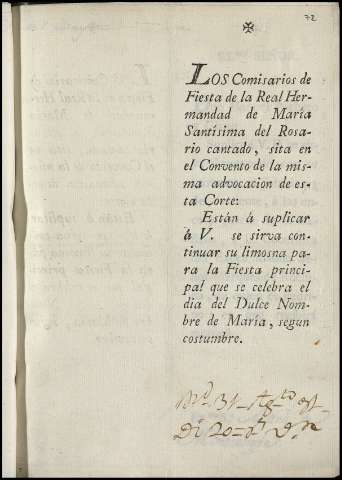 72
LOS Comisarios de
Fiesta de la Real Her-
mandad de María
Santísima del Rosa-
rio cantado, sita en
el Convento de la mis-
ma advocacion de es-
ta Corte:
Están á suplicar
á V. se sirva con-
tinuar su limosna pa-
ra la Fiesta princi-
pal que se celebra el
dia del Dulce Nom-
bre de María, segun
costumbre.
31
Di 20